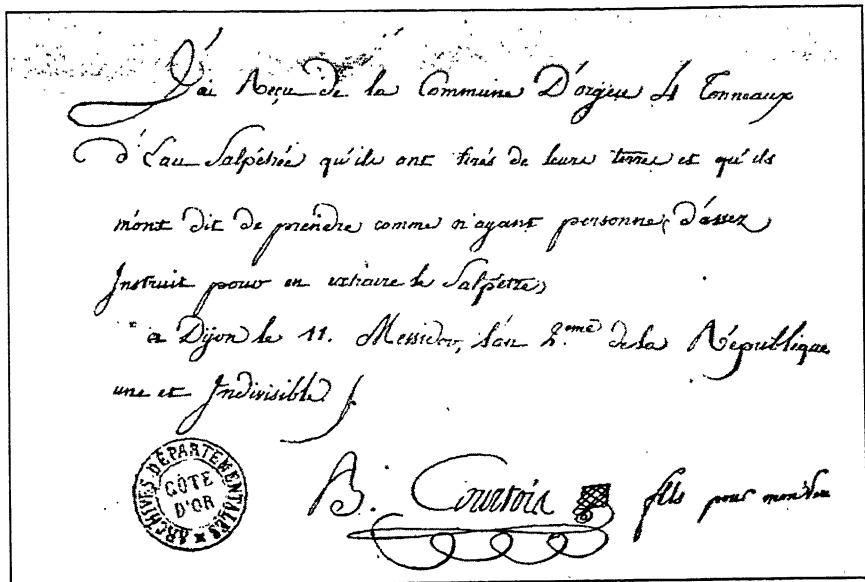 J'ai Reçu de la Commune D'orgeu 4 Tonneaux
d'Eau Salpétrée qu'ils ont tirés de leurs terres et qu'ils
m'ont dit de prendre comme n'ayant personne d'assez
Instruit pour en extraire le Salpêtre,
a Dijon le 11. Messidor, l'an 2.eme de la République
une et Indivisible
B. Courtois fils pour mon
ARCHIVES DÉPARTEMENTALES
CÔTE
D'OR